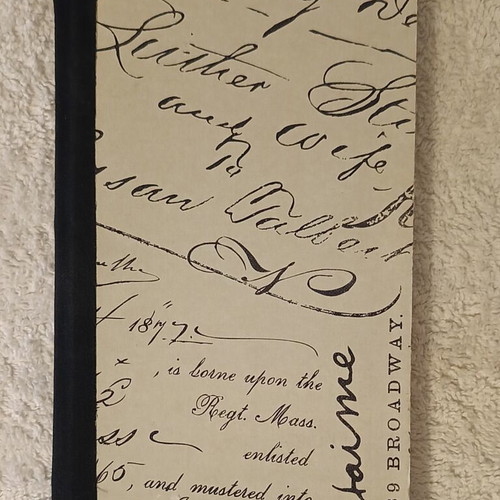 Luther St
and wife,
to
san Talbot
1877.
, is borne upon the
Regt. Mass.
enlisted
65, and mustered into
taime
9 BROADWAY.